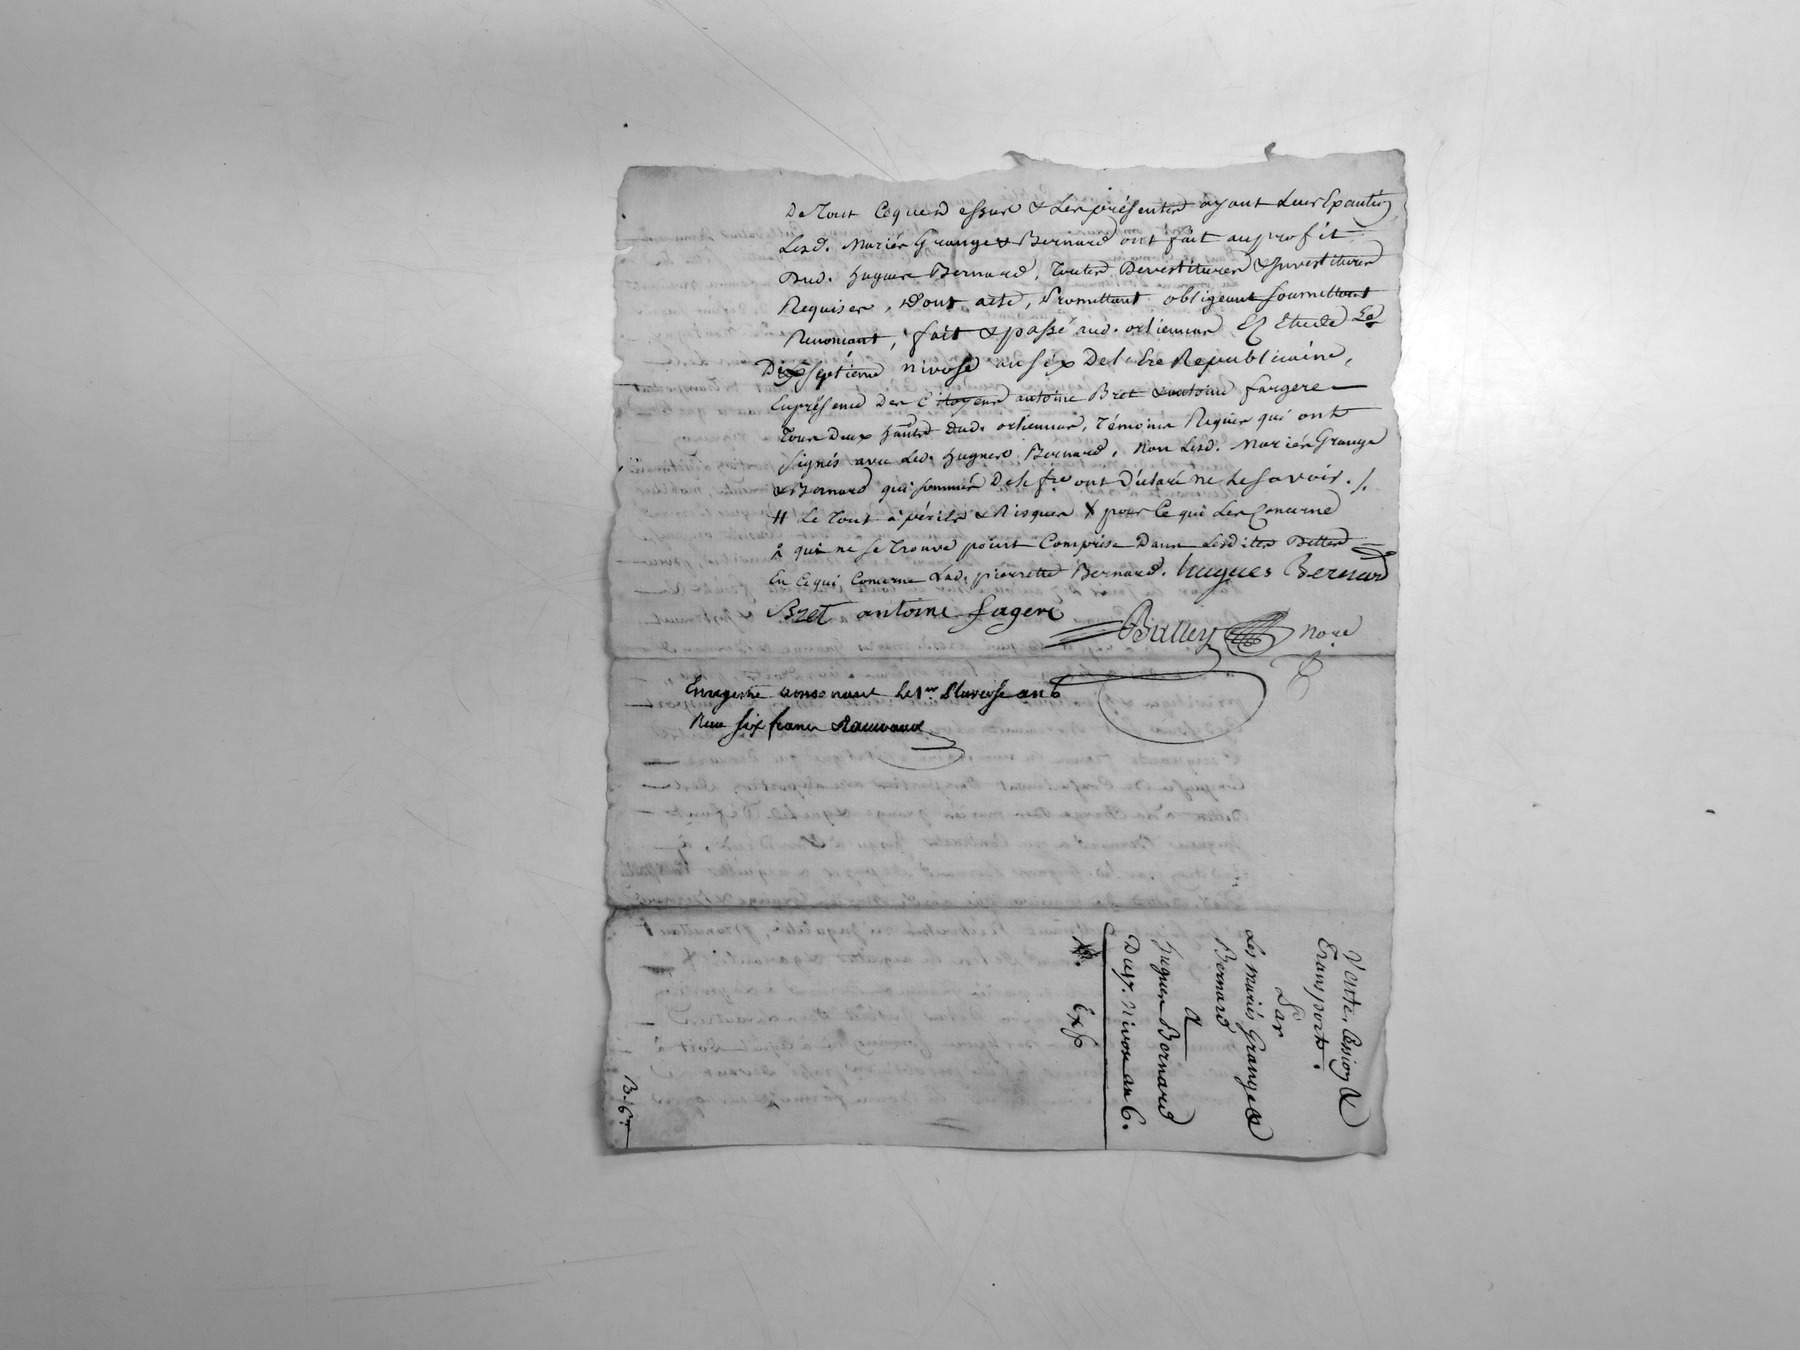 De Tout Ceque d essus & Les présentes ayant Leur Exécution
Lesd. Mariés Grange & Bernard ont fait au profit
Dud. hugues Bernard, Toutes Devestitures & Investitures
Requises, Dont acte, Promettant obligeant soumettant
Renonçant, fait & passé aud. orliennas En Etude Le
Dixseptieme nivose an six De l'Ere Republicaine,
En présence Des Citoyens antoine Bret & antoine fargere
Tous Deux habts dud. orliennas, Témoins Requis qui ont
signés avec Led. hugues Bernard, Non Lesd. Mariés Grange
& Bernard qui sommés De le fre ont Déclaré ne le savoir ./.
# Le Tout à périls & Risques X pour Ce qui Les Concerne
qui ne se Trouve point Comprise Dans Lesdites Dettes
En Ce qui Concerne Lad. pierrette Bernard. hugues Bernard
Bret antoine fagere
Balley Nore
Enregistré a le 1er. Pluviose an 6
Recu six francs
Vente, Cession &
Transports.
Par
Les mariés Grange &
Bernard
a
hugues Bernard
Du 17. Nivose an 6.
Exp